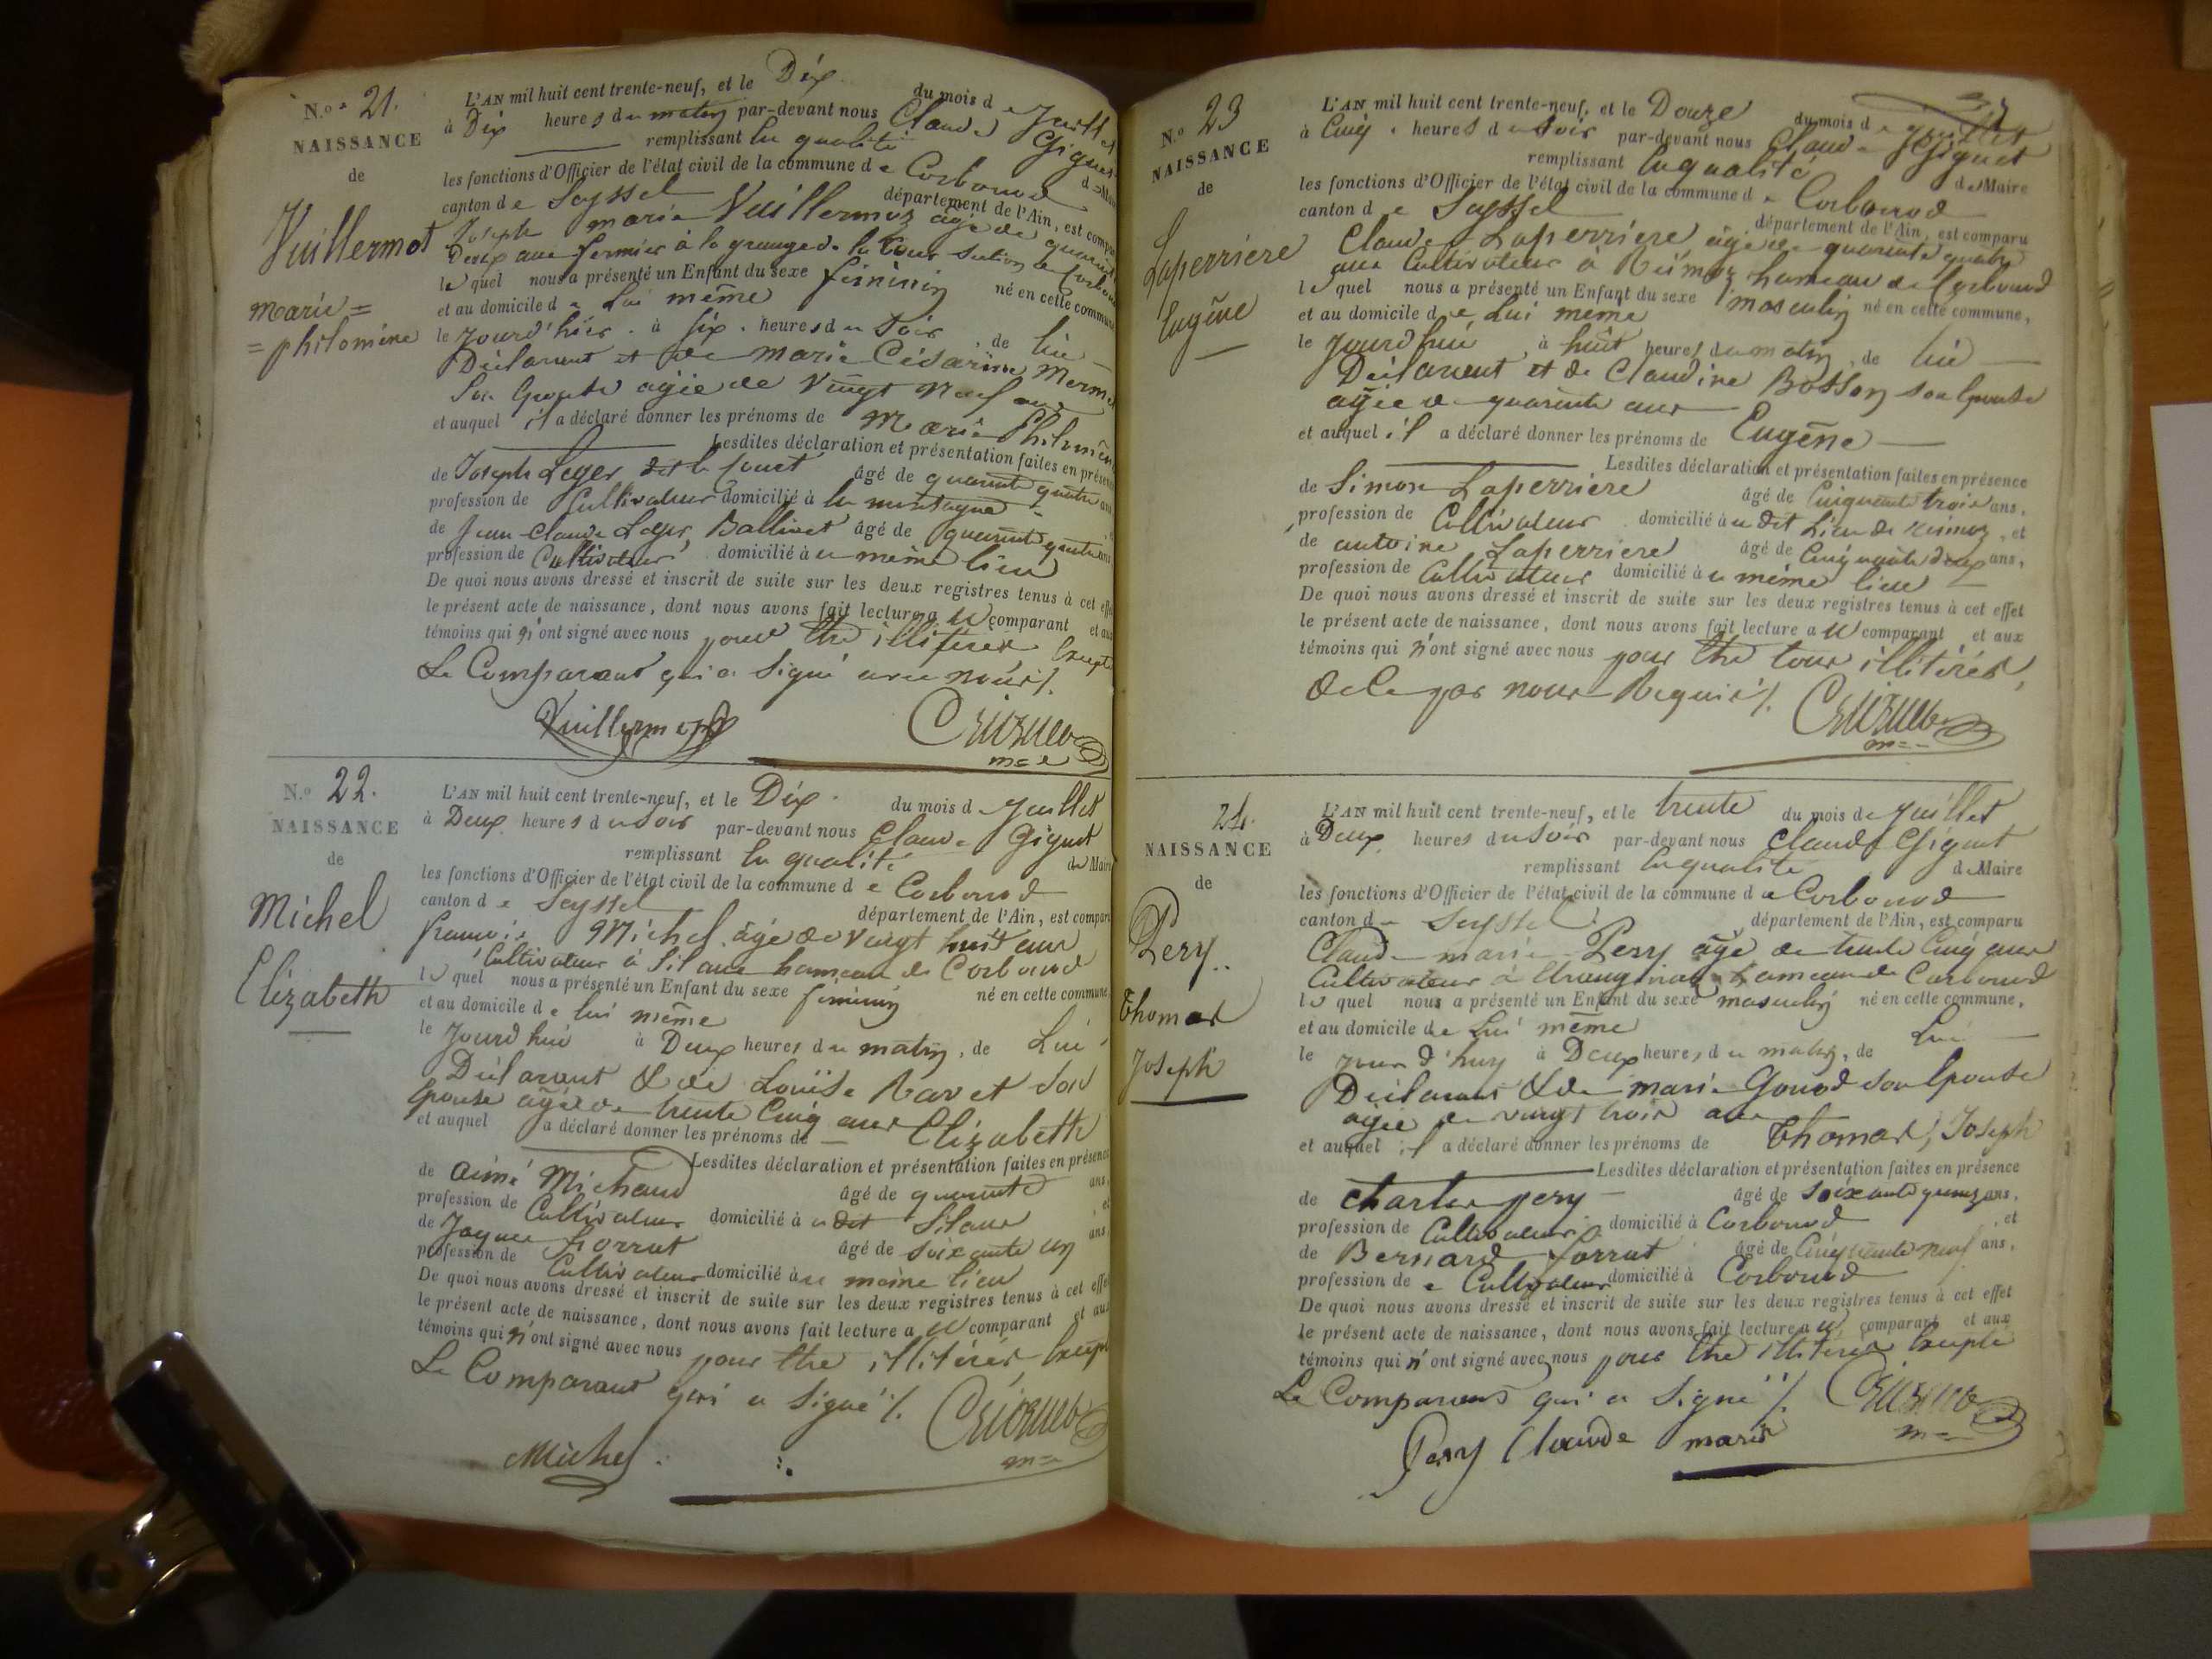 N.o 21.
NAISSANCE
de
Vuillermot
marie =
= philomène
L'AN mil huit cent trente-neuf, et le Dix du mois de Juillet
à Dix heures du matin par-devant nous Claude Giguet
remplissant la qualité de
les fonctions d'Officier de l'état civil de la commune de Corbonod
canton de Seyssel département de l'Ain, est comparu
Joseph marie Vuillermoz âgé de quarante
Deux ans fermier à la grange de la Cour section de Corbonod
lequel nous a présenté un Enfant du sexe féminin né en cette commune
et au domicile de Lui même
le Jourd'hier à six heures du soir, de lui
Déclarant et de marie Césarine Mermet
Son Epouse agée de Vingt Neuf ans
et auquel il a déclaré donner les prénoms de Marie Philomène
Lesdites déclaration et présentation faites en présence
de Joseph Leger dit le fouet âgé de quarante quatre ans
profession de Cultivateur domicilié à la montagne
de Jean Claude Leger, Ballivet âgé de quarante quatre ans
profession de Cultivateur domicilié à u même lieu
De quoi nous avons dressé et inscrit de suite sur les deux registres tenus à cet effet
le présent acte de naissance, dont nous avons fait lecture a u comparant et aux
témoins qui n'ont signé avec nous pour être illitérés Excepté
Le Comparant qui a Signé avec nous /.
Vuillermoz
Giguet
m=e
N.o 22.
NAISSANCE
de
Michel
Elizabeth
L'AN mil huit cent trente-neuf, et le Dix du mois de Juillet
à Deux heures du soir par-devant nous Claude Giguet
remplissant la qualité de Maire
les fonctions d'Officier de l'état civil de la commune de Corbonod
canton de Seyssel département de l'Ain, est comparu
françois Michel âgé de vingt huit ans
Cultivateur à Silans hameau de Corbonod
lequel nous a présenté un Enfant du sexe féminin né en cette commune
et au domicile de lui même
le Jourd'hui à Deux heures du matin, de Lui
Déclarant & de Louïse Ravet Son
Epouse agée de trente Cinq ans
et auquel a déclaré donner les prénoms de Elizabeth
Lesdites déclaration et présentation faites en présence
de aimé Michaud âgé de quarante ans,
profession de Cultivateur domicilié à u dit Silans, et
de Jaques forrat âgé de soixante un ans,
profession de Cultivateur domicilié à u même lieu
De quoi nous avons dressé et inscrit de suite sur les deux registres tenus à cet effet
le présent acte de naissance, dont nous avons fait lecture a u comparant et aux
témoins qui n'ont signé avec nous pour être illitérés Excepté
Le Comparant qui a Signé /.
Giguet
Michel
m=
N.o 23
NAISSANCE
de
Laperriere
Eugêne
L'AN mil huit cent trente-neuf, et le Douze du mois de Juillet
à Cinq heures du soir par-devant nous Claude Giguet
remplissant la qualité de Maire
les fonctions d'Officier de l'état civil de la commune de Corbonod
canton de Seyssel département de l'Ain, est comparu
Claude Laperriere âgé de quarante quatre
ans Cultivateur à Reimoz hameau de Corbonod
lequel nous a présenté un Enfant du sexe masculin né en cette commune,
et au domicile de Lui même
le Jourd'hui à huit heures du matin, de lui
Déclarant et de Claudine Bosson son Epouse
agée de quarante ans
et auquel il a déclaré donner les prénoms de Eugêne
Lesdites déclaration et présentation faites en présence
de Simon Laperriere âgé de Cinquante trois ans,
profession de Cultivateur domicilié à u dit Lieu de Reimoz, et
de antoine Laperriere âgé de Cinquante deux ans,
profession de Cultivateur domicilié à u même lieu
De quoi nous avons dressé et inscrit de suite sur les deux registres tenus à cet effet
le présent acte de naissance, dont nous avons fait lecture a u comparant et aux
témoins qui n'ont signé avec nous pour être tous illitérés,
de ce par nous Requis /.
Giguet
m=
24.
NAISSANCE
de
Pery
Thomas
Joseph
L'AN mil huit cent trente-neuf, et le trente du mois de Juillet
à Deux heures du soir par-devant nous Claude Giguet
remplissant la qualité de Maire
les fonctions d'Officier de l'état civil de la commune de Corbonod
canton de Seyssel département de l'Ain, est comparu
Claude marie Pery âgé de trente Cinq ans
Cultivateur à hameau de Corbonod
lequel nous a présenté un Enfant du sexe masculin né en cette commune,
et au domicile de Lui même
le jour d'huy à Deux heures du matin, de Lui
Déclarant & de marie Gonod son Epouse
agée de vingt trois ans
et auquel il a déclaré donner les prénoms de Thomas, Joseph
Lesdites déclaration et présentation faites en présence
de Charles pery âgé de soixante quinze ans,
profession de Cultivateur domicilié à Corbonod, et
de Bernard forrat âgé de Cinquante neuf ans,
profession de Cultivateur domicilié à Corbonod
De quoi nous avons dressé et inscrit de suite sur les deux registres tenus à cet effet
le présent acte de naissance, dont nous avons fait lecture a u comparant et aux
témoins qui n'ont signé avec nous pour être illitérés Excepté
Le Comparant qui a Signé /.
Giguet
Pery Claude marie
m=